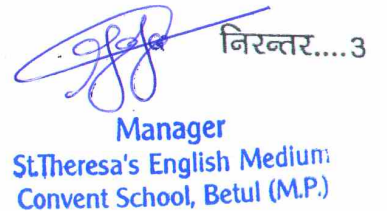 निरन्तर....3
Manager
St.Theresa's English Medium
Convent School, Betul (M.P.)